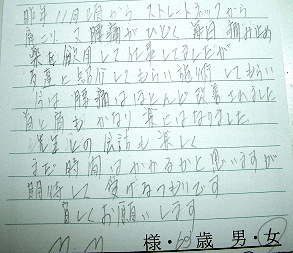 昨年11月頃から ストレートネックから
肩こり 腰痛がひどく 毎日 痛み止め
薬を飲用して仕事してましたが
して もらい
今は 腰痛はほとんど改善されました
首と肩も かなり 楽にはなりました
先生との会話も楽しく
まだ時間はかかるかと思いますが
期待して 受けるつもりです
宜しくお願いします
M.M 様・69歳 男・女